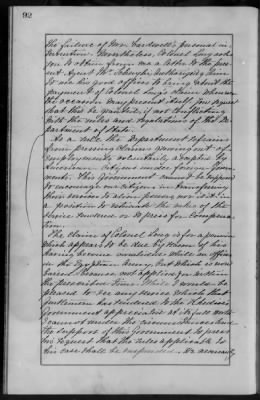 92
the failure of Mr. Cardwell's personal in-
tervention. Nevertheless, Colonel Long asks
you to obtain from me a letter to the pres-
ent Agent Mr. Schuyler authorizing him
to use his good offices to bring about the
payment of Colonel Long's claim whenever
the occasion may present itself. You request
that this be granted, if not conflicting
with the rules and regulations of the De-
partment of State.
As a rule the Department refrains
from pressing claims growing out of
employments voluntarily adopted by
American citizens under foreign Govern-
ments. This Government cannot be supposed
to encourage our citizens in transferring
their services to other powers nor is it in
a position to estimate the value of the
service rendered or to press for compensa-
tion.
The claim of Colonel Long is for a pension
which appears to be due by reason of his
having become invalided while an officer
in the Egyptian Army, but which is now
barred because not applied for within
the prescribed time. While I would be
pleased to see any service which that
gentleman has rendered to the Khedive's
Government appreciated at its full worth
I cannot under the circumstances lend
the support of this Government to press
his request that the rules applicable to
his case shall be suspended.